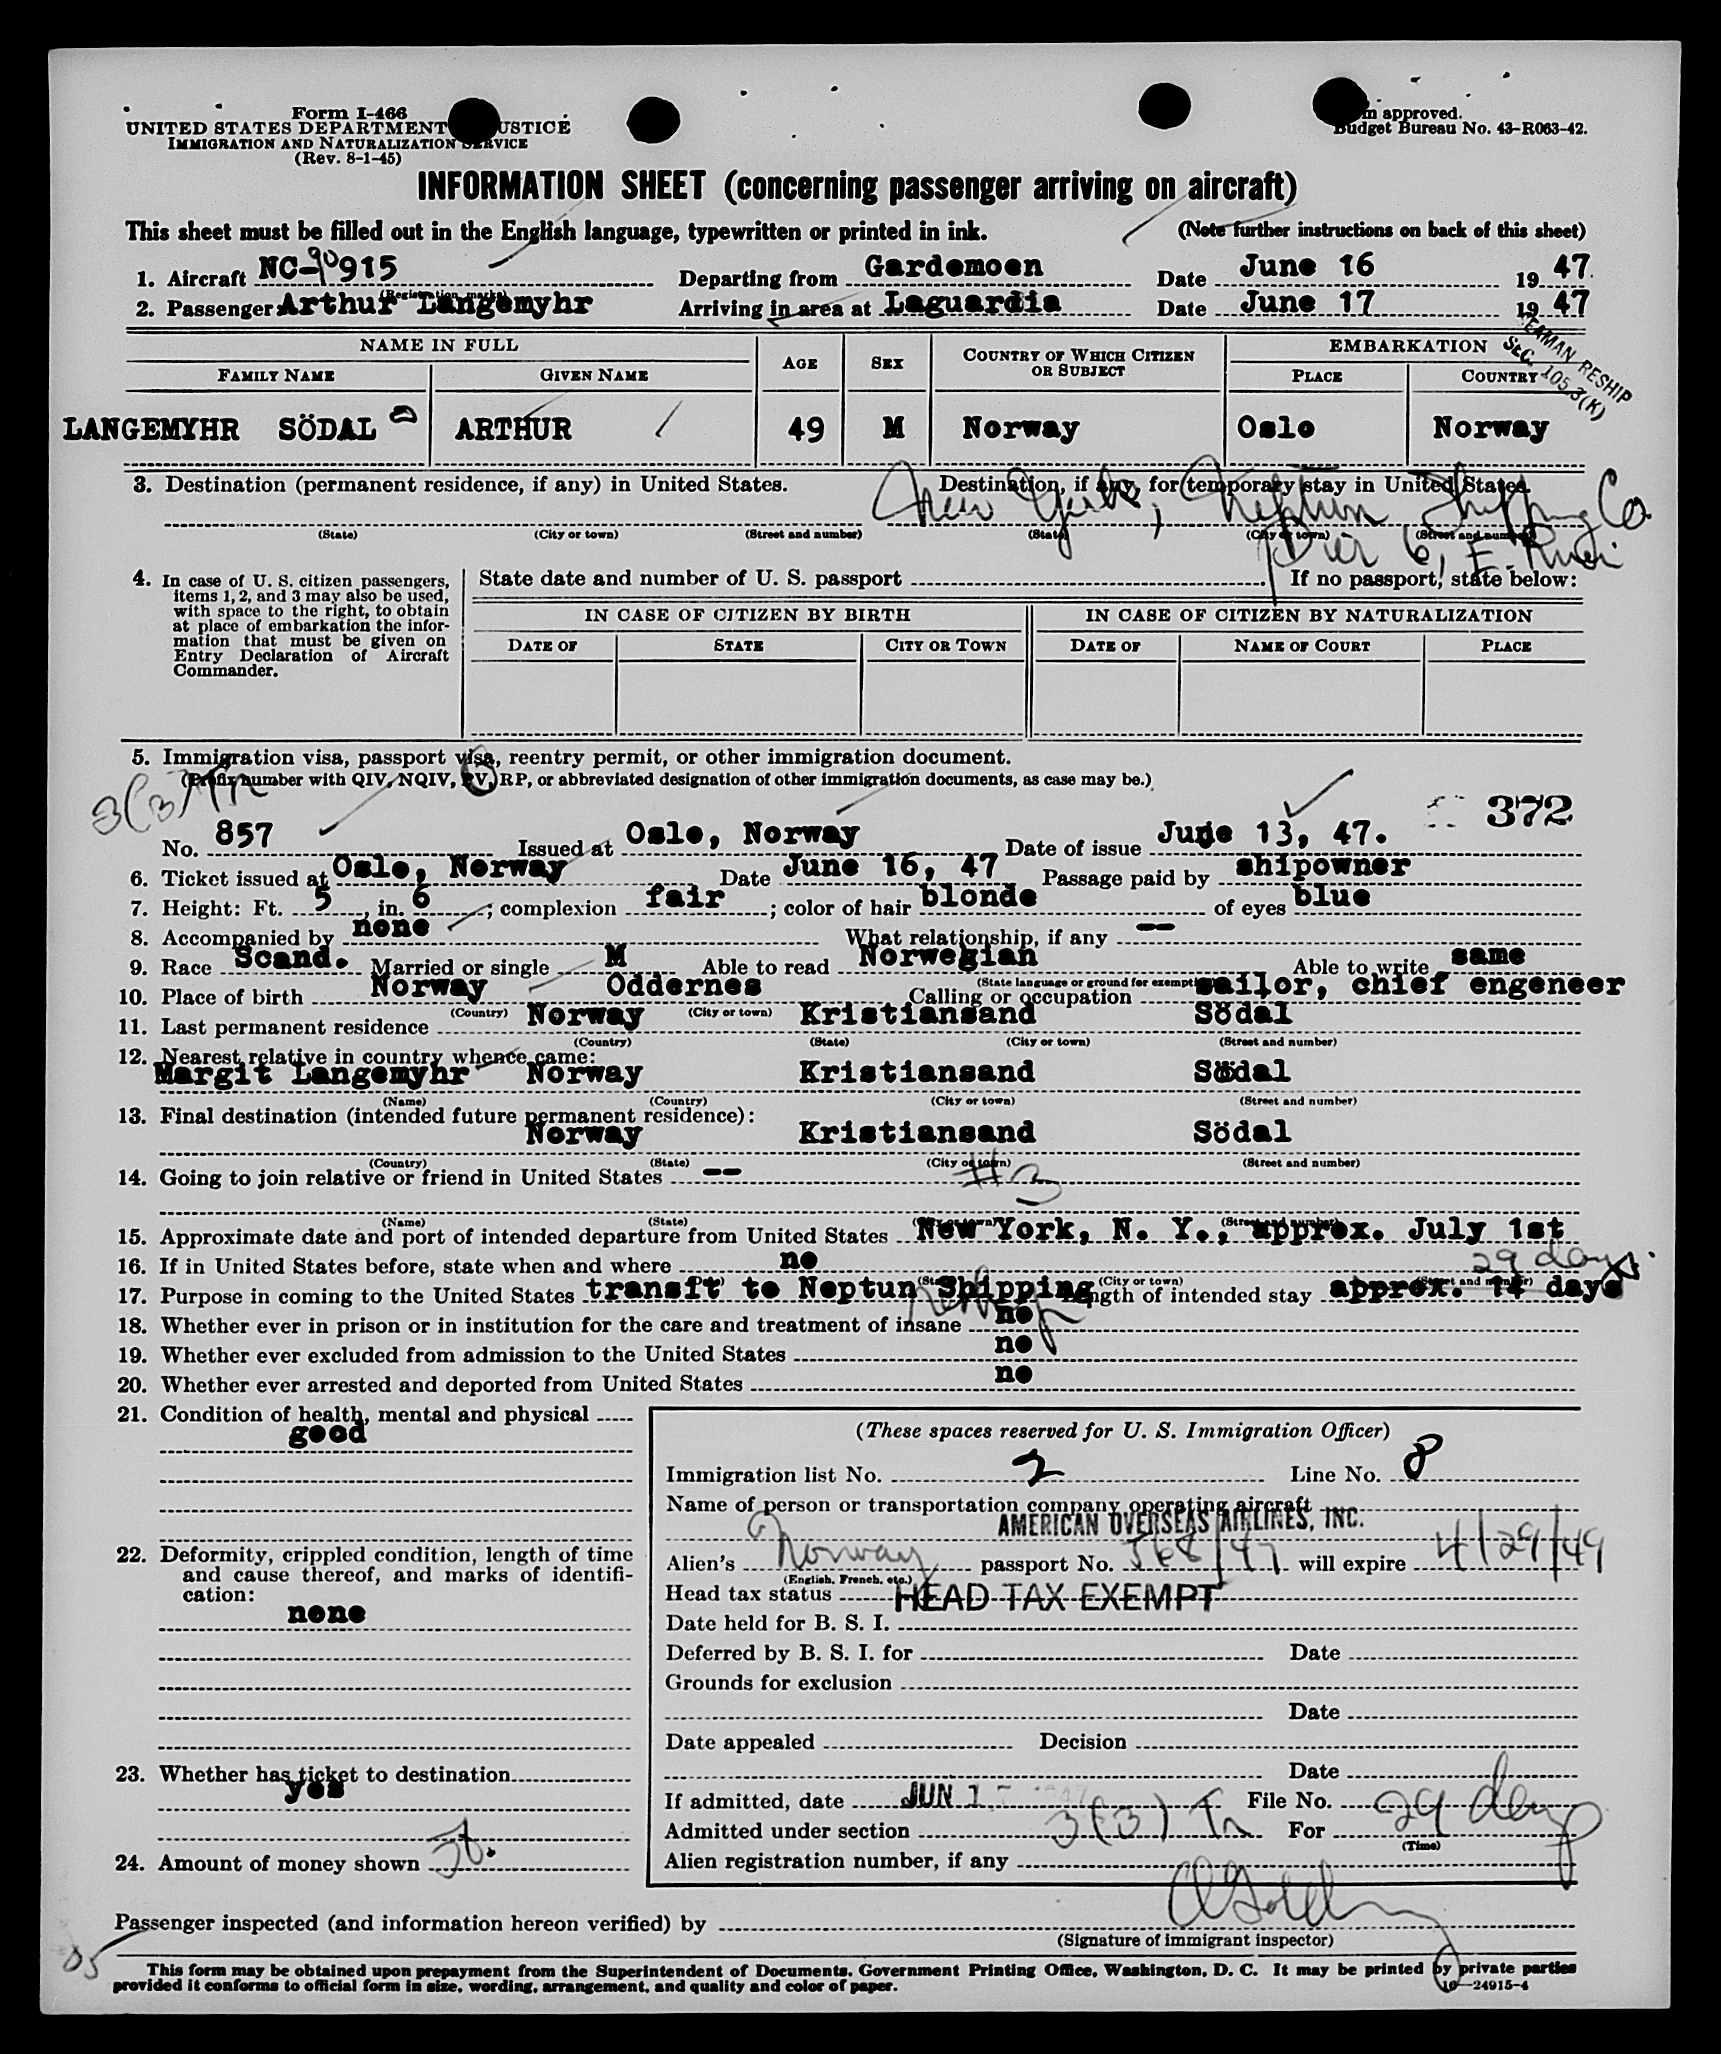 Form I-466
UNITED STATES DEPARTMENT JUSTICE
IMMIGRATION AND NATURALIZATION SERVICE
(Rev. 8-1-45)
approved.
Budget Bureau No. 43-R063-42.
INFORMATION SHEET (concerning passenger arriving on aircraft)
This sheet must be filled out in the English language, typewritten or printed in ink. (Note further instructions on back of this sheet)
1. Aircraft NC-90915 Departing from Gardemoen Date June 16 1947
(Registration marks)
2. Passenger Arthur Langemyhr Arriving in area at Laguardia Date June 17 1947
SEAMAN RESHIP
Sec. 105.3(K)
NAME IN FULL AGE SEX COUNTRY OF WHICH CITIZEN OR SUBJECT EMBARKATION
FAMILY NAME GIVEN NAME PLACE COUNTRY
LANGEMYHR SÖDAL ARTHUR 49 M Norway Oslo Norway
3. Destination (permanent residence, if any) in United States. Destination, if any, for temporary stay in United States.
New York, Neptun Shipping Co.
(State) (City or town) (Street and number) (State) (City or town) (Street and number)
Pier 6, E. River
4. In case of U. S. citizen passengers, items 1, 2, and 3 may also be used, with space to the right, to obtain at place of embarkation the information that must be given on Entry Declaration of Aircraft Commander.
State date and number of U. S. passport If no passport, state below:
IN CASE OF CITIZEN BY BIRTH IN CASE OF CITIZEN BY NATURALIZATION
DATE OF STATE CITY OR TOWN DATE OF NAME OF COURT PLACE
5. Immigration visa, passport visa, reentry permit, or other immigration document.
(Prefix number with QIV, NQIV, PV, RP, or abbreviated designation of other immigration documents, as case may be.)
3(3) Tr
372
No. 857 Issued at Oslo, Norway Date of issue June 13, 47.
6. Ticket issued at Oslo, Norway Date June 16, 47 Passage paid by shipowner
7. Height: Ft. 5, in. 6; complexion fair; color of hair blonde of eyes blue
8. Accompanied by none What relationship, if any --
9. Race Scand. Married or single M Able to read Norwegian Able to write same
(State language or ground for exemption)
10. Place of birth Norway Oddernes Calling or occupation sailor, chief engeneer
(Country) (City or town)
11. Last permanent residence Norway Kristiansand Södal
(Country) (State) (City or town) (Street and number)
12. Nearest relative in country whence came:
Margit Langemyhr Norway Kristiansand Södal
(Name) (Country) (City or town) (Street and number)
13. Final destination (intended future permanent residence):
Norway Kristiansand Södal
(Country) (State) (City or town) (Street and number)
14. Going to join relative or friend in United States --
#3
(Name) (State) (City or town) (Street and number)
15. Approximate date and port of intended departure from United States New York, N. Y., approx. July 1st
16. If in United States before, state when and where no
29 days.
(State) (City or town) (Street and number)
17. Purpose in coming to the United States transit to Neptun Shipping Length of intended stay approx. 14 days
reship
18. Whether ever in prison or in institution for the care and treatment of insane no
19. Whether ever excluded from admission to the United States no
20. Whether ever arrested and deported from United States no
21. Condition of health, mental and physical
good
22. Deformity, crippled condition, length of time and cause thereof, and marks of identification:
none
23. Whether has ticket to destination
yes
24. Amount of money shown
(These spaces reserved for U. S. Immigration Officer)
Immigration list No. 2 Line No. 8
Name of person or transportation company operating aircraft
AMERICAN OVERSEAS AIRLINES, INC.
Alien's Norway passport No. 368/47 will expire 4/29/49
(English, French, etc.)
Head tax status HEAD TAX EXEMPT
Date held for B. S. I.
Deferred by B. S. I. for Date
Grounds for exclusion
Date
Date appealed Decision
Date
If admitted, date JUN 17 File No.
Admitted under section 3(3) Tr For 29 days
(Time)
Alien registration number, if any
Passenger inspected (and information hereon verified) by
(Signature of immigrant inspector)
This form may be obtained upon prepayment from the Superintendent of Documents, Government Printing Office, Washington, D. C. It may be printed by private parties
provided it conforms to official form in size, wording, arrangement, and quality and color of paper. 16—24915-4